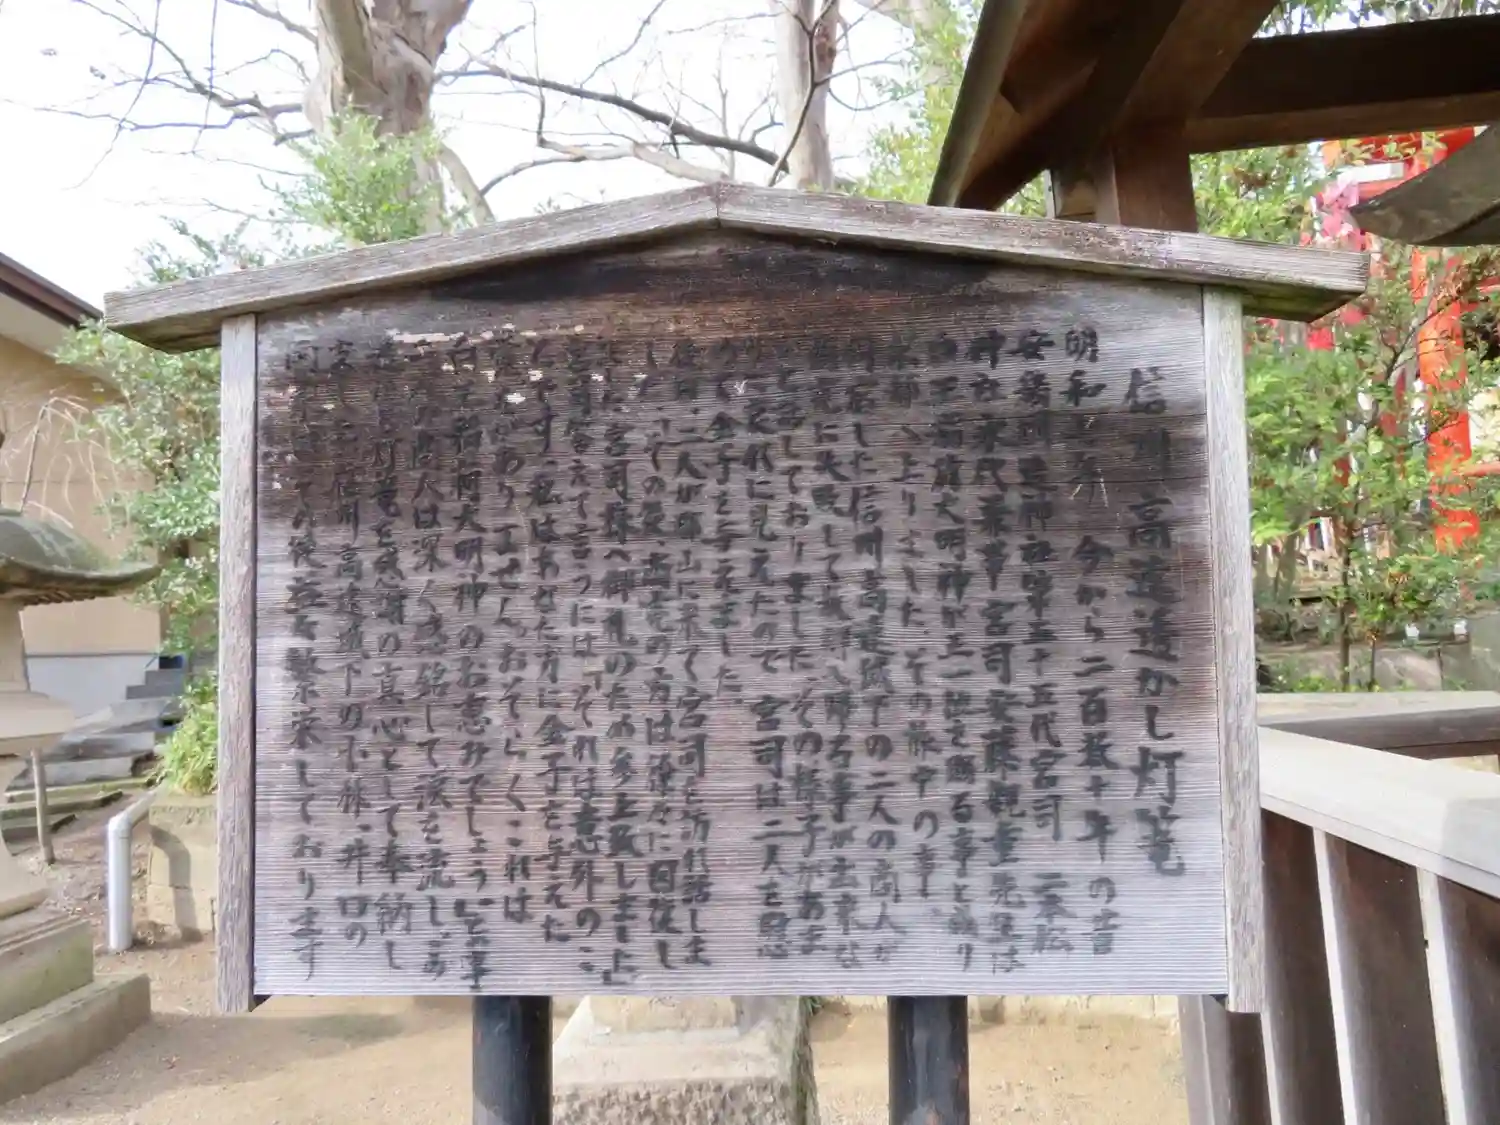 信州高遠透かし灯篭
明和 今から二百数十年の昔
安積国造神社第五十五代宮司 二本松
神社 宮司安藤親重先生は
稲荷大明神が正一位を賜る事と成り
京都へ上りました。その旅中の事、
同宿した信州高遠城下の二人の商人が
に失敗して故郷へ帰る事が出来な
いと話しておりました。その様子があま
りに哀れに見えたので宮司は二人を
金子を与えました。
後日、二人が郡山に来て宮司を訪れ話しま
した。「その後、商売の方は徐々に回復し
宮司様へ御礼のため参上致しました」
宮司答えて言うには「それは意外のこ
とです。私はあなた方に金子を与えた
ありません。おそらくこれは
稲荷大明神のお恵みでしょう」との事
商人は深く感銘して涙を流し、あ
灯篭を感謝の真心として奉納し
ました。信州高遠城下の小林、井口の
その後益々繁栄しております